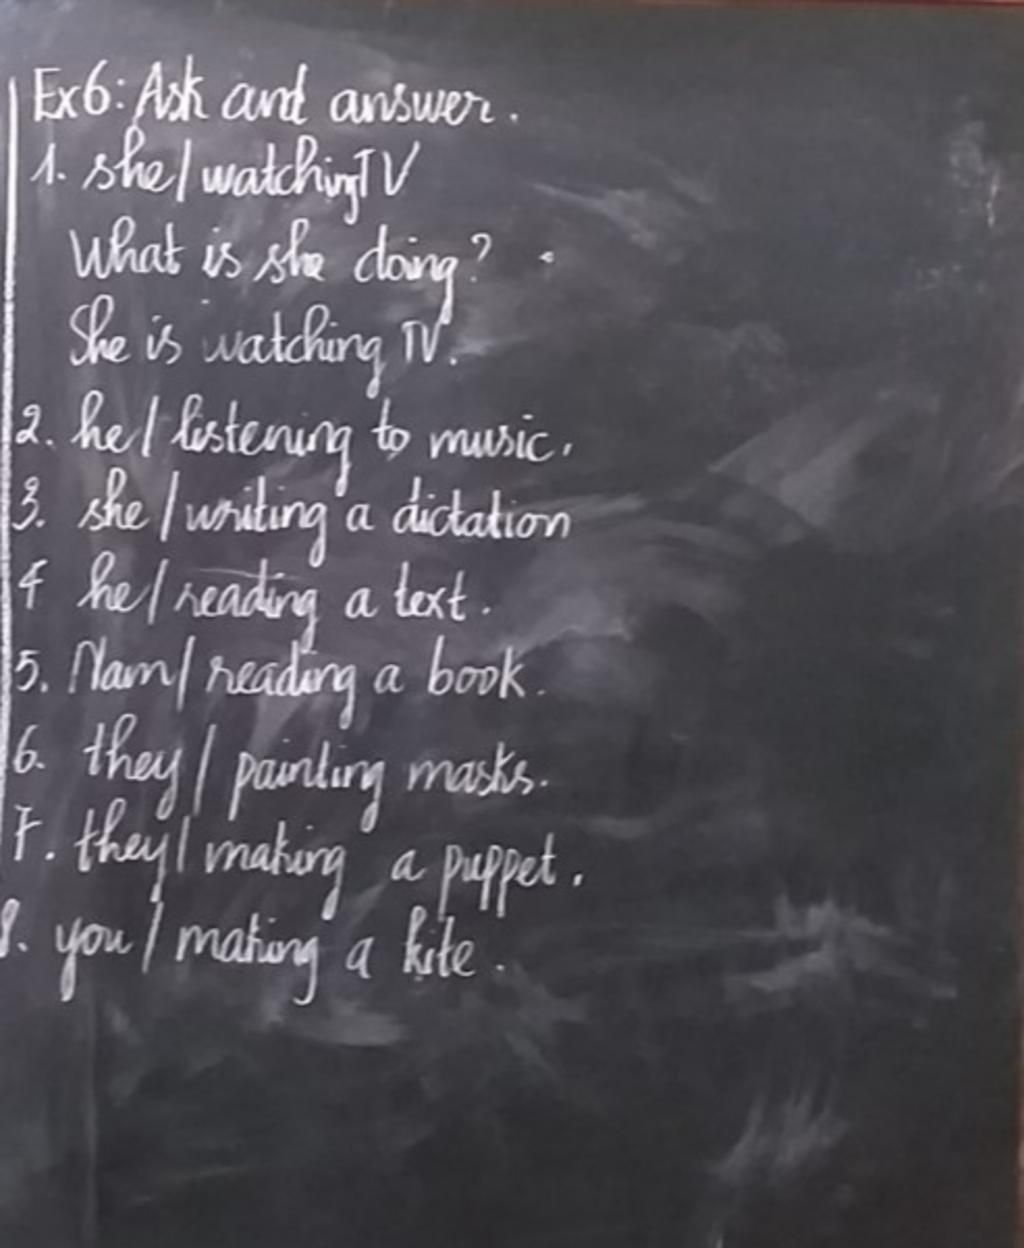 Ex6: Ask and answer.
1. she / watching TV
What is she doing?
She is watching TV.
2. he / listening to music.
3. she / writing a dictation
4 he / reading a text.
5. Nam / reading a book.
6. they / painting masks.
7. they / making a puppet.
8. you / making a kite.